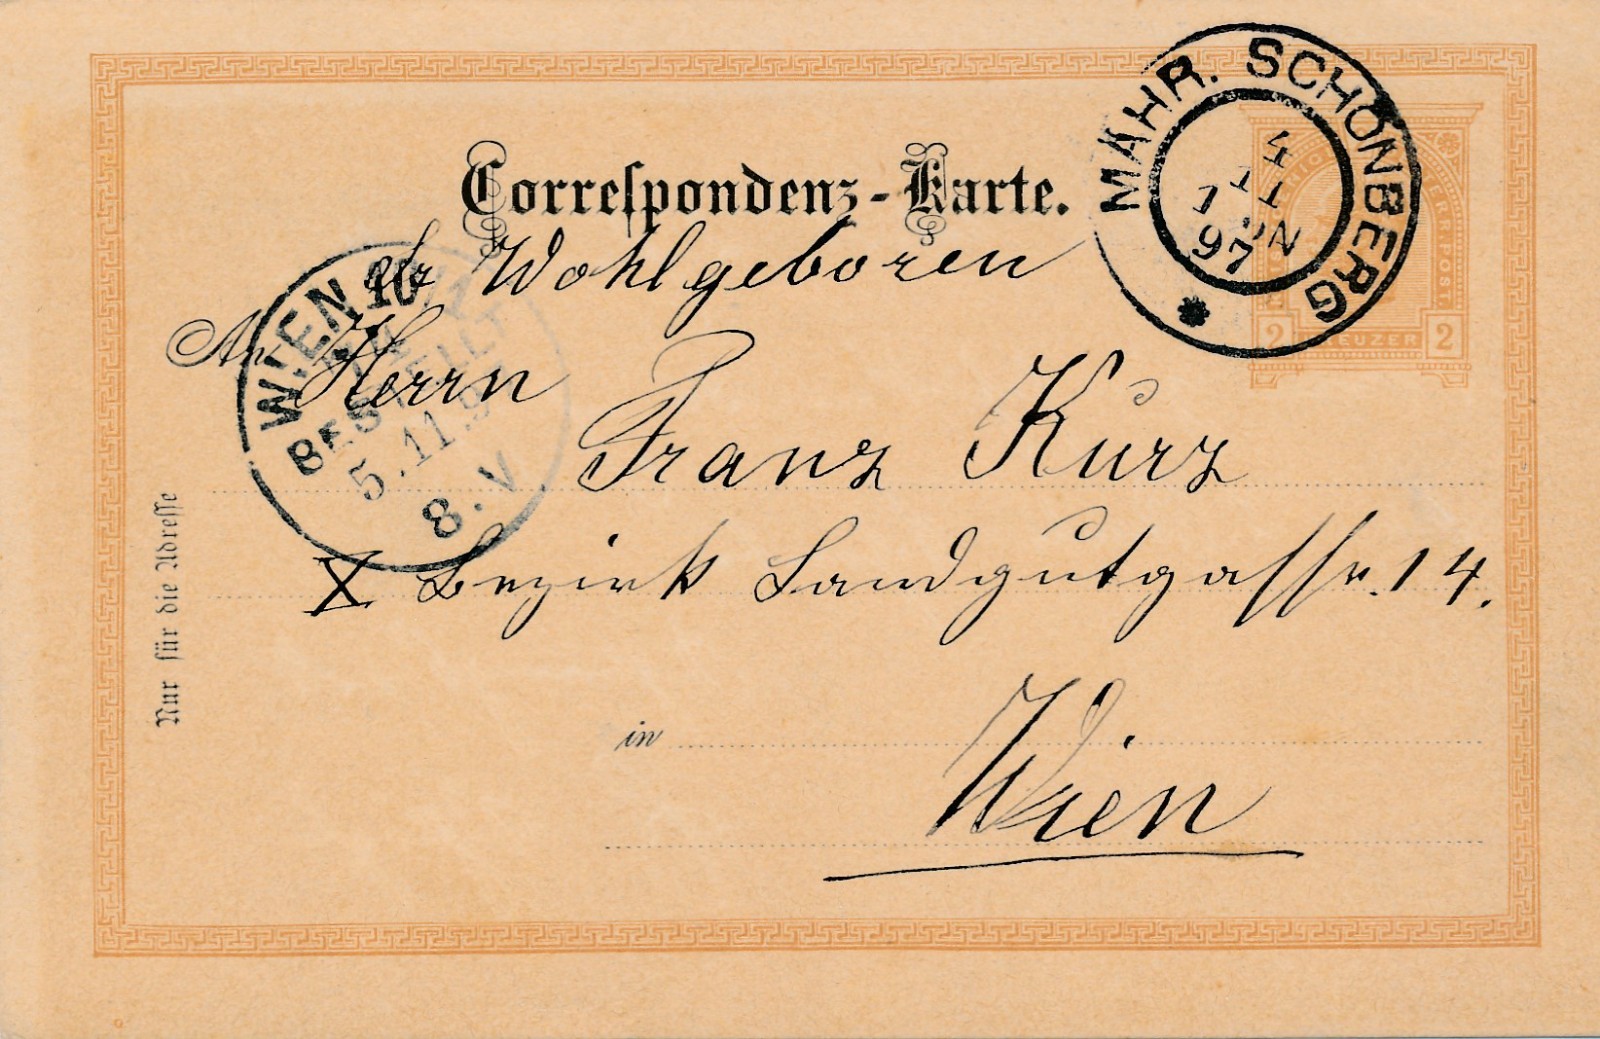 Correspondenz-Karte.
MÄHR. SCHÖNBERG
4
11
7 N
97
KREUZER
2 2
Wohlgeboren
An Herrn
Franz Kurz
X Bezirk Landgutgasse. 14.
in Wien
WIEN 10
BESTELLT
5.11.9
8. V
Nur für die Adresse